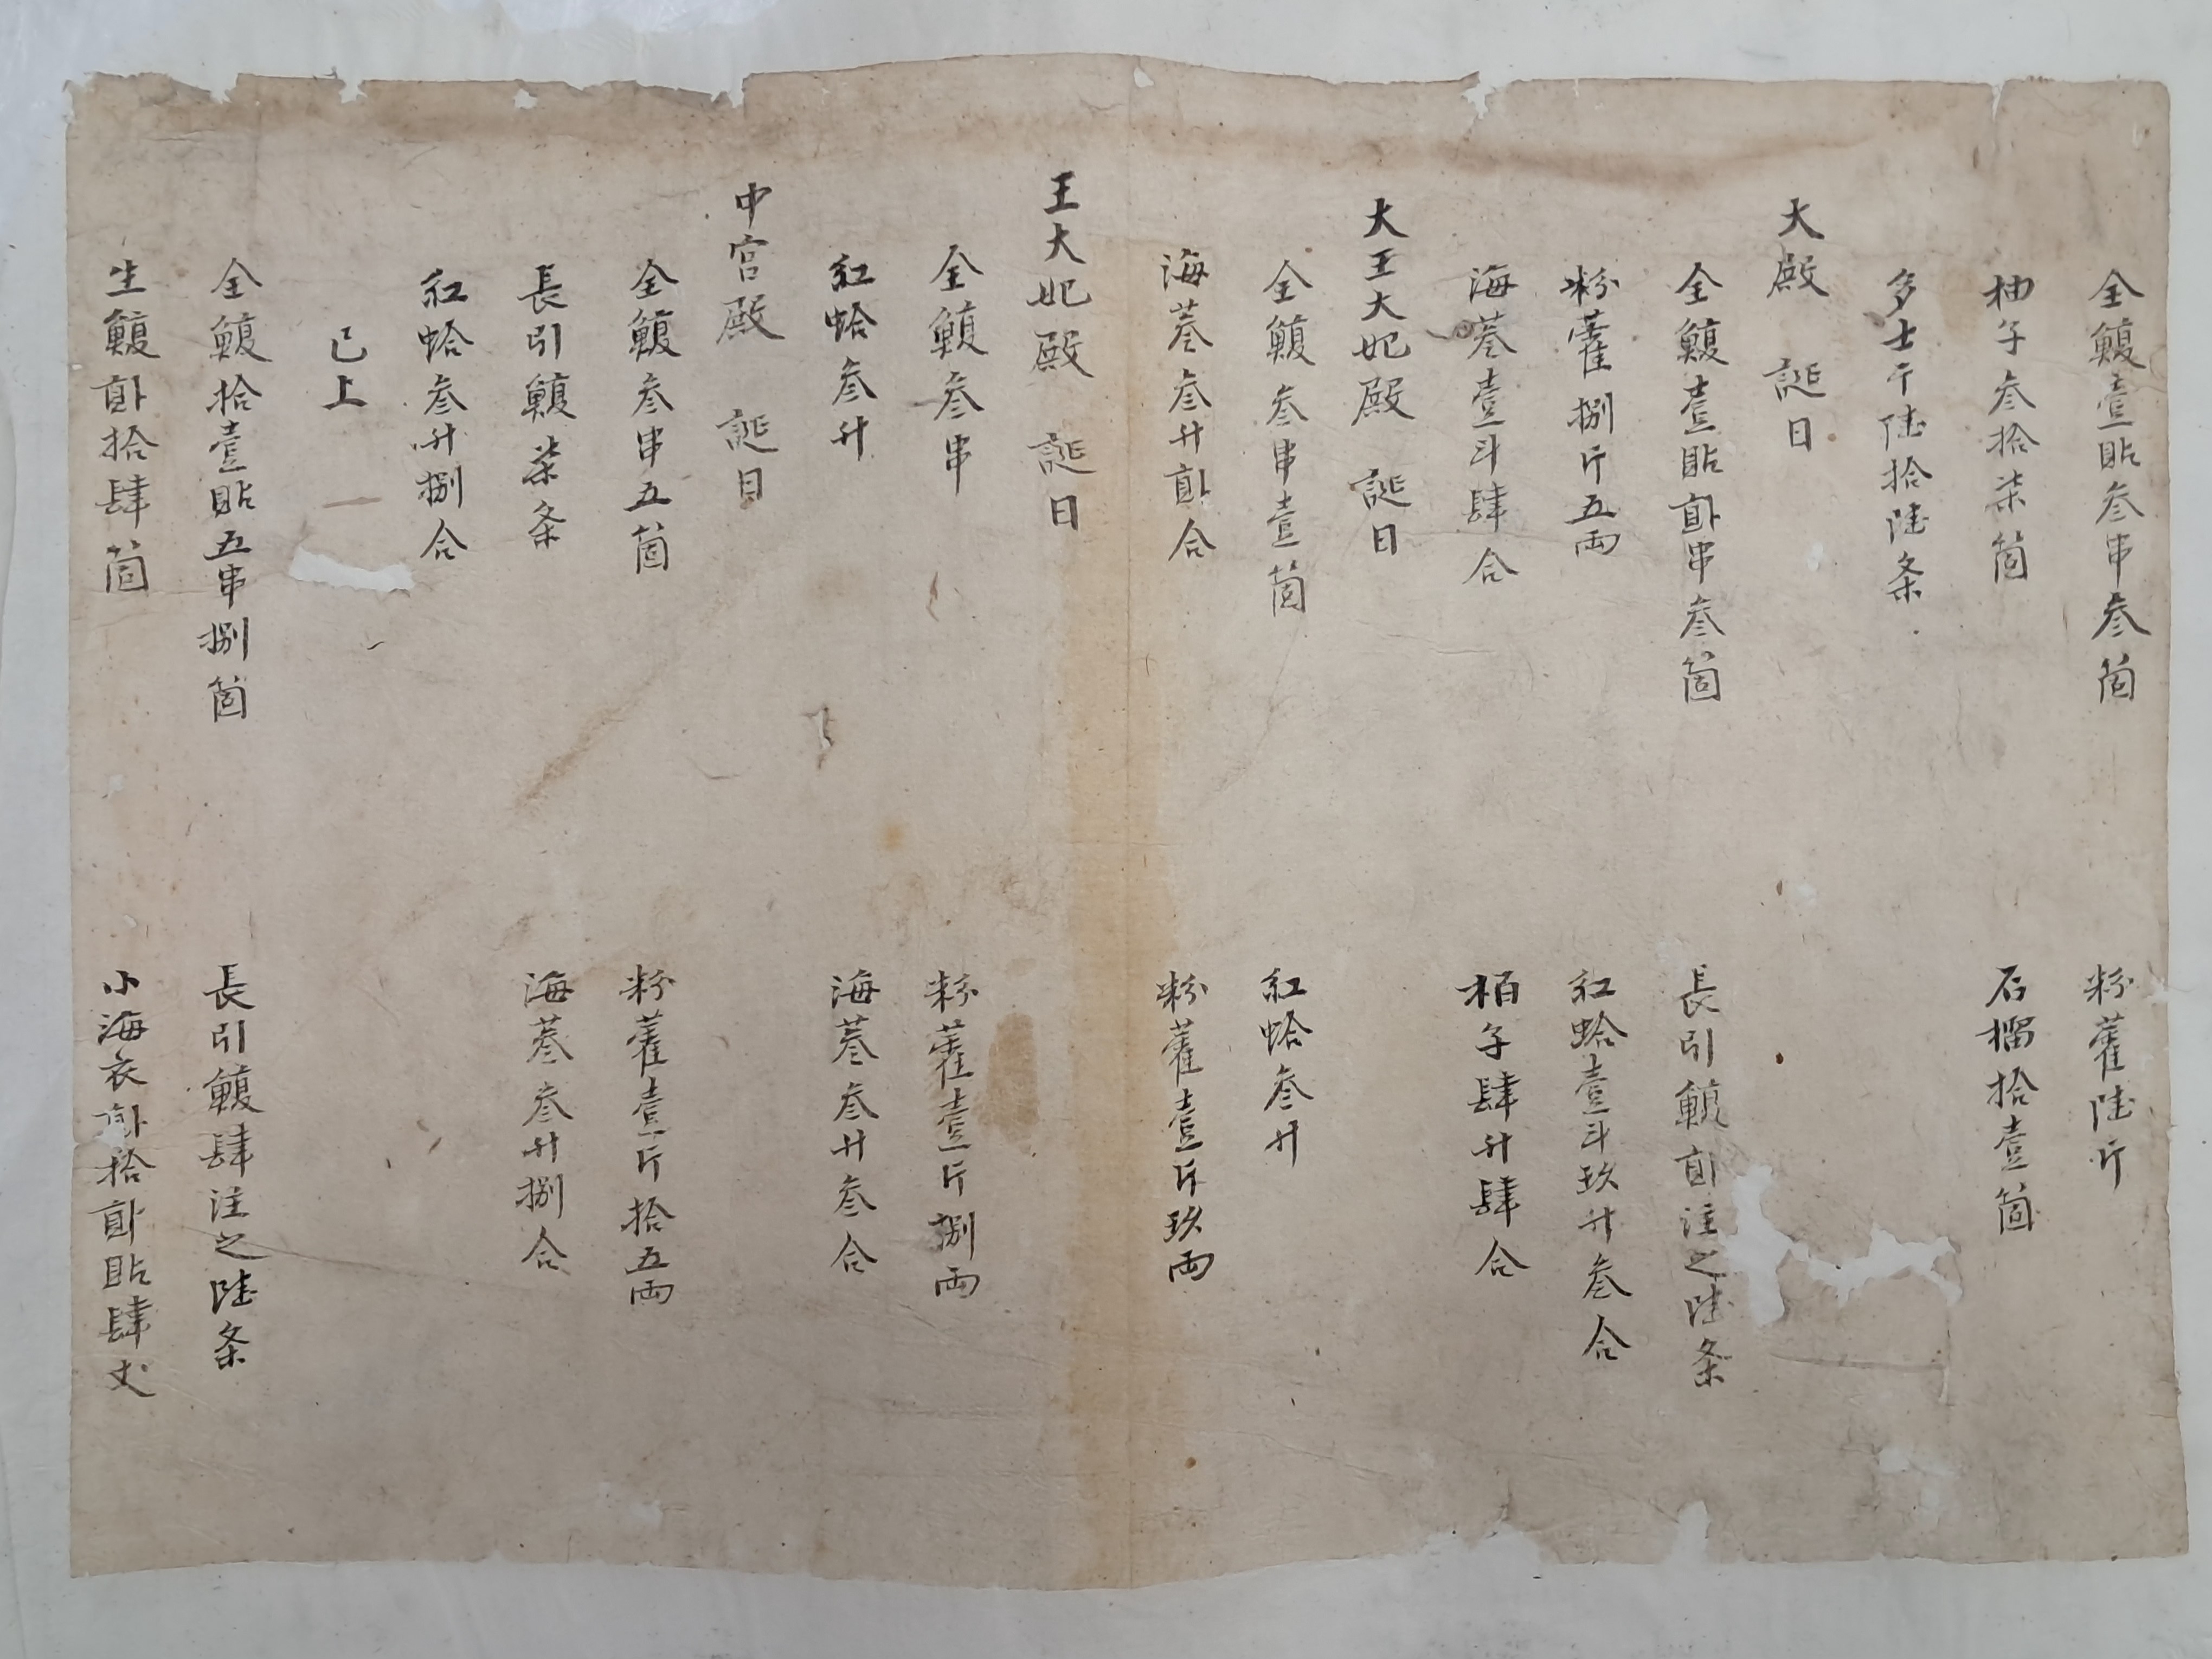 全鰒壹貼叄串叄箇 粉藿陸斤
柚子叄拾柒箇 石榴拾壹箇
多士亇陸拾陸条
大殿 誕日
全鰒壹貼貳串叄箇 長引鰒貳注之陸条
粉藿捌斤五両 紅蛤壹斗玖升叄合
海蔘壹斗肆合 栢子肆升肆合
大王大妃殿 誕日
全鰒叄串壹箇 紅蛤叄升
海蔘叄升貳合 粉藿壹斤玖両
王大妃殿 誕日
全鰒叄串 粉藿壹斤捌両
紅蛤叄升 海蔘叄升叄合
中宮殿 誕日
全鰒叄串五箇 粉藿壹斤拾五両
長引鰒柒条 海蔘叄升捌合
紅蛤叄升捌合
已上
全鰒拾壹貼五串捌箇 長引鰒肆注之陸条
生鰒貳拾肆箇 小海衣貳拾貳貼肆丈